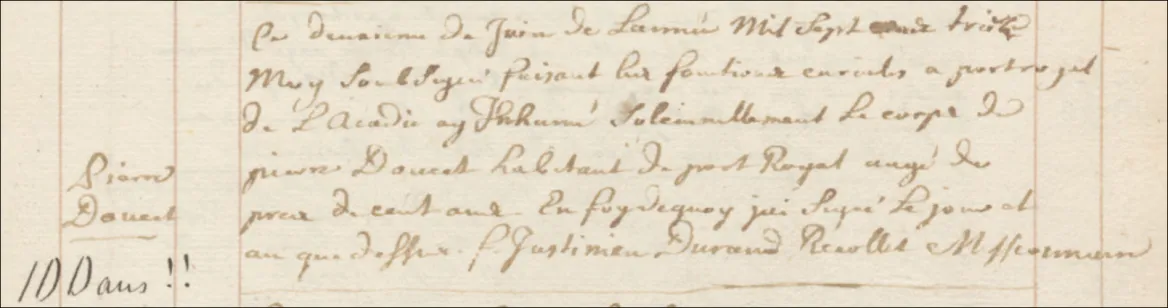 Le deuxieme de Juin de Lanneé Mil Sept treize
Moy Soubsigné faisant les fontions curiales a portroyal
de L'Acadie ay Inhumé Solemnellement le corps de
pierre Doucet habitant de port Royal augé de
prez de cent ans En foy dequoy jai Signé le jour et
an que dessus. f. Justinien Durand Recollet Missionnaire
Pierre
Doucet
100 ans !!